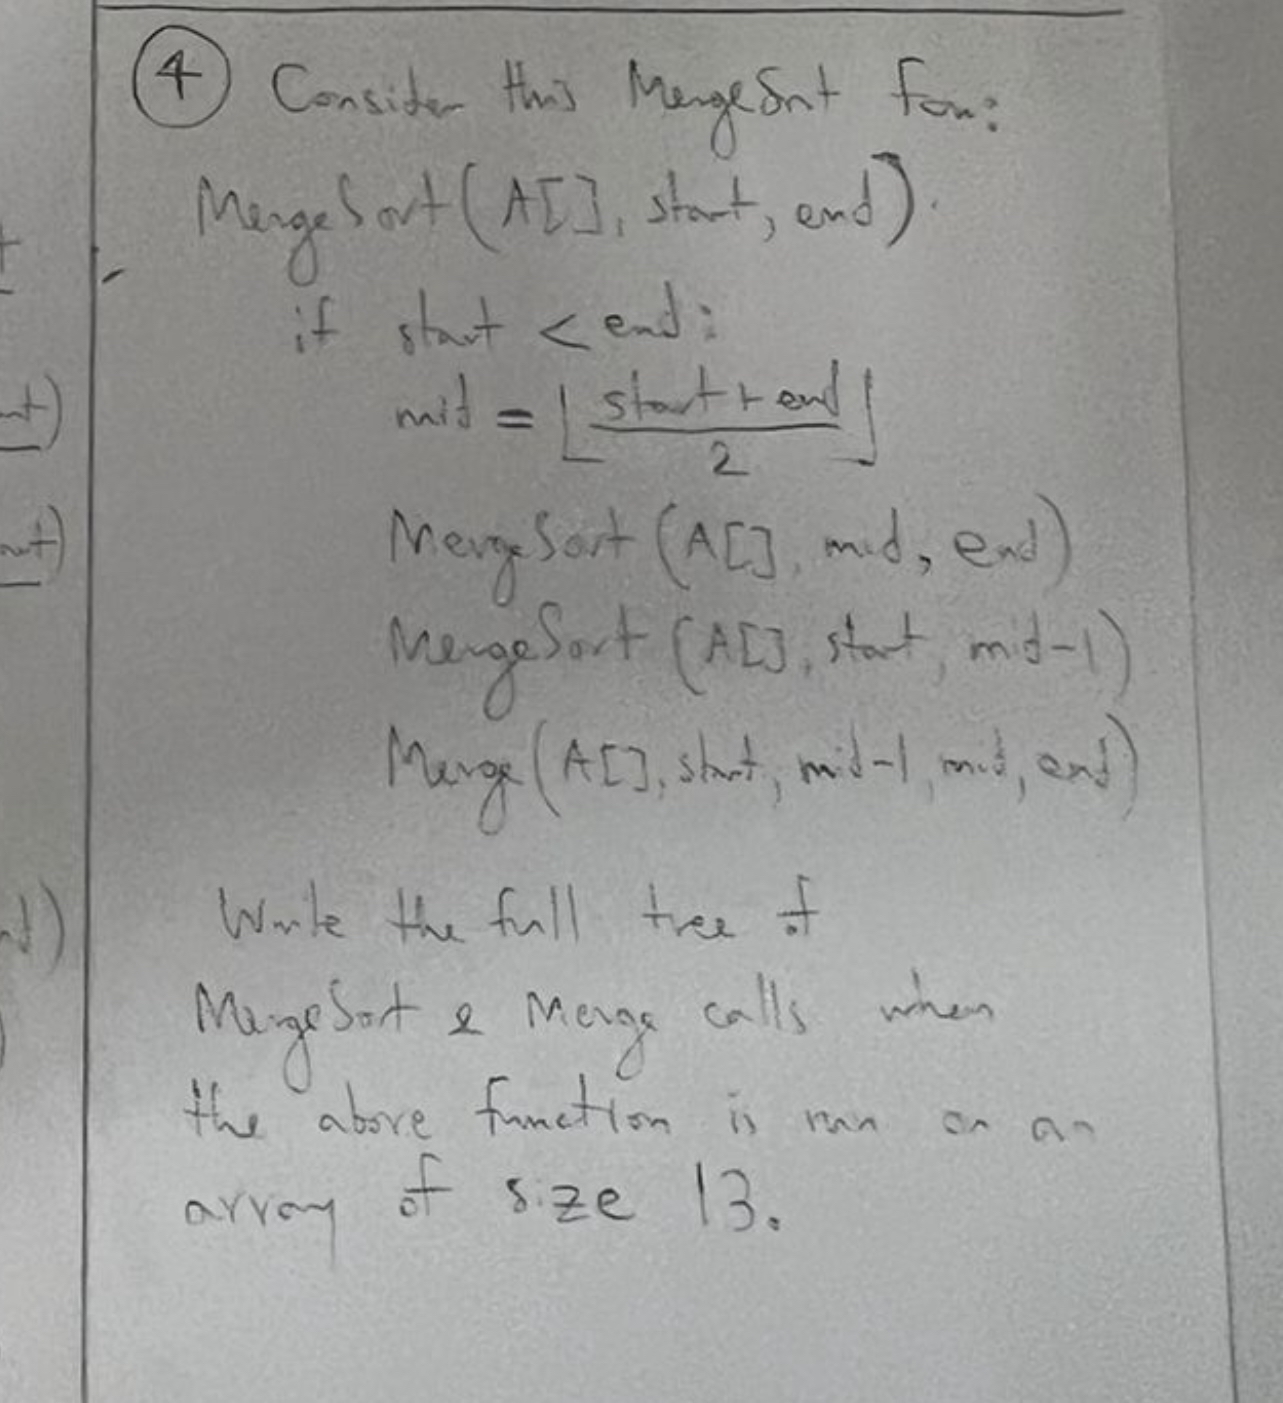 ④ Consider this MergeSort fcn:
MergeSort(A[], start, end).
if start < end:
mid = ⌊(start + end)/2⌋
MergeSort (A[], mid, end)
MergeSort (A[], start, mid-1)
Merge(A[], start, mid-1, mid, end)
Write the full tree of
MergeSort & Merge calls when
the above function is run on an
array of size 13.